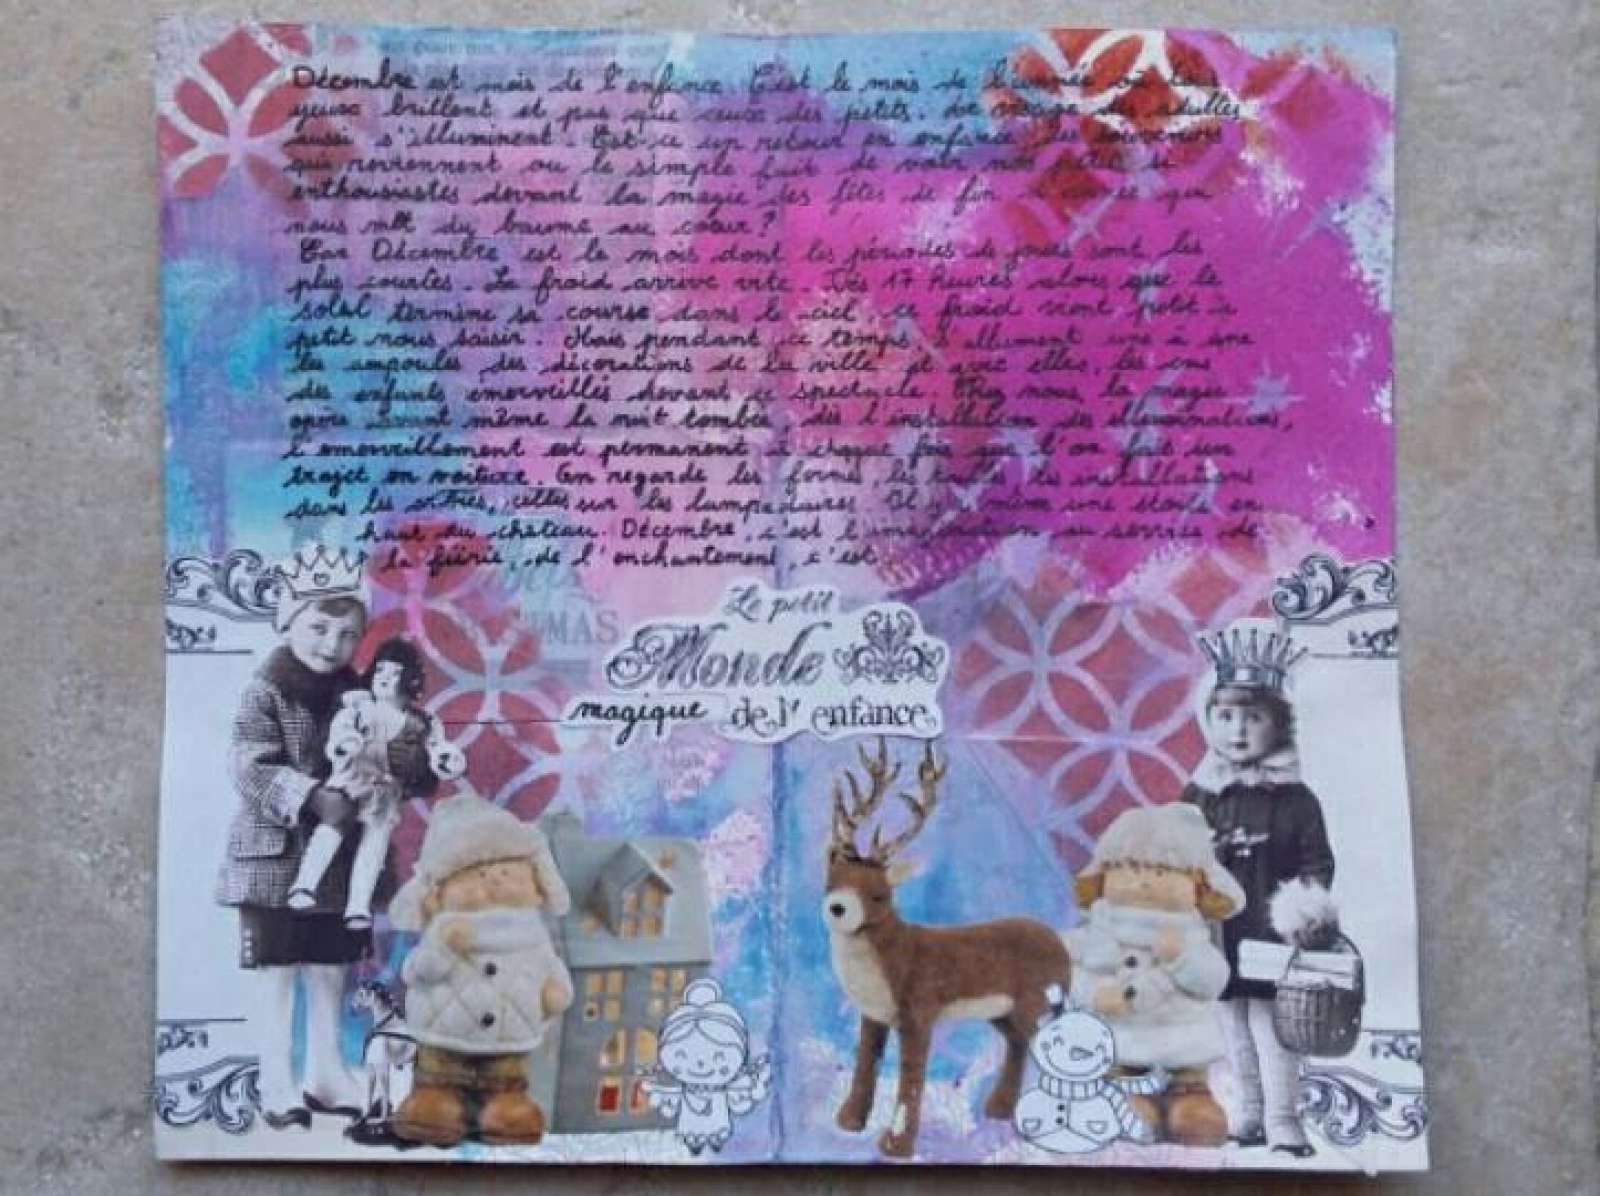 Décembre est mois de l'enfance. C'est le mois de l'année où tous
yeux brillent et pas que ceux des petits. Le visage des adultes
aussi s'illuminent. Est-ce un retour en enfance, les souvenirs
qui reviennent ou le simple fait de voir nos petits si
enthousiastes devant la magie des fêtes de fin d'année qui
nous met du baume au cœur ?
Car Décembre est le mois dont les périodes de jours sont les
plus courtes. Le froid arrive vite. Dès 17 heures alors que le
soleil termine sa course dans le ciel, ce froid vient petit à
petit nous saisir. Mais pendant ce temps s'allument une à une
les ampoules des décorations de la ville et avec elles, les
des enfants émerveillés devant ce spectacle. Chez nous la magie
opère avant même la nuit tombée, dès l'installation des illuminations,
l'émerveillement est permanent à chaque fois que l'on fait un
trajet en voiture. On regarde les formes, les tailles, les installations
dans les arbres, celles sur les lampadaires. Il y a même une étoile en
haut du château. Décembre, c'est l'imagination au service de
la féérie, de l'enchantement, c'est
CHRISTMAS
Le petit
Monde
magique de l'enfance